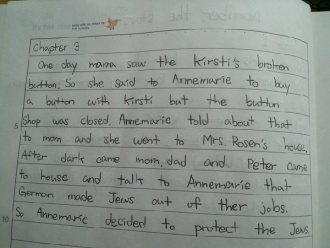 Chapter 3
One day mama saw the Kirsti's broten
button. So she said to Annemarie to buy
a button with Kirsti but the button
5 shop was closed. Annemarie told about that
to mom and she went to Mrs. Rosen's house.
After dark came mom, dad and Peter came
to house and talk to Annemarie that
German made Jews out of ther jobs.
10 So Annemarie decided to protect the Jews.